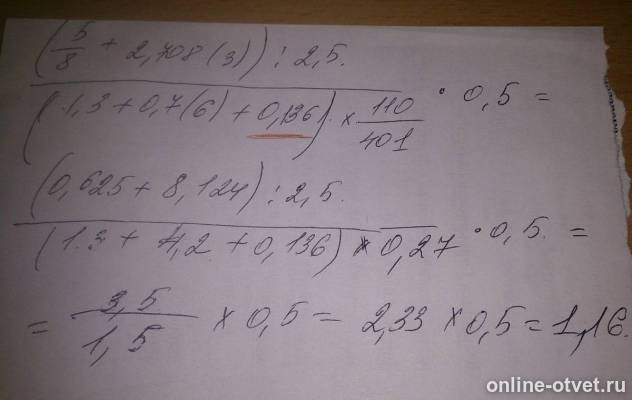 (5/8 + 2,708(3)) : 2,5.
(1,3 + 0,7(6) + 0,136) × 110/401 · 0,5 =
(0,625 + 8,124) : 2,5.
(1.3 + 4,2 + 0,136) × 0,27 · 0,5. =
= 3,5/1,5 × 0,5 = 2,33 × 0,5 = 1,16.
online-otvet.ru